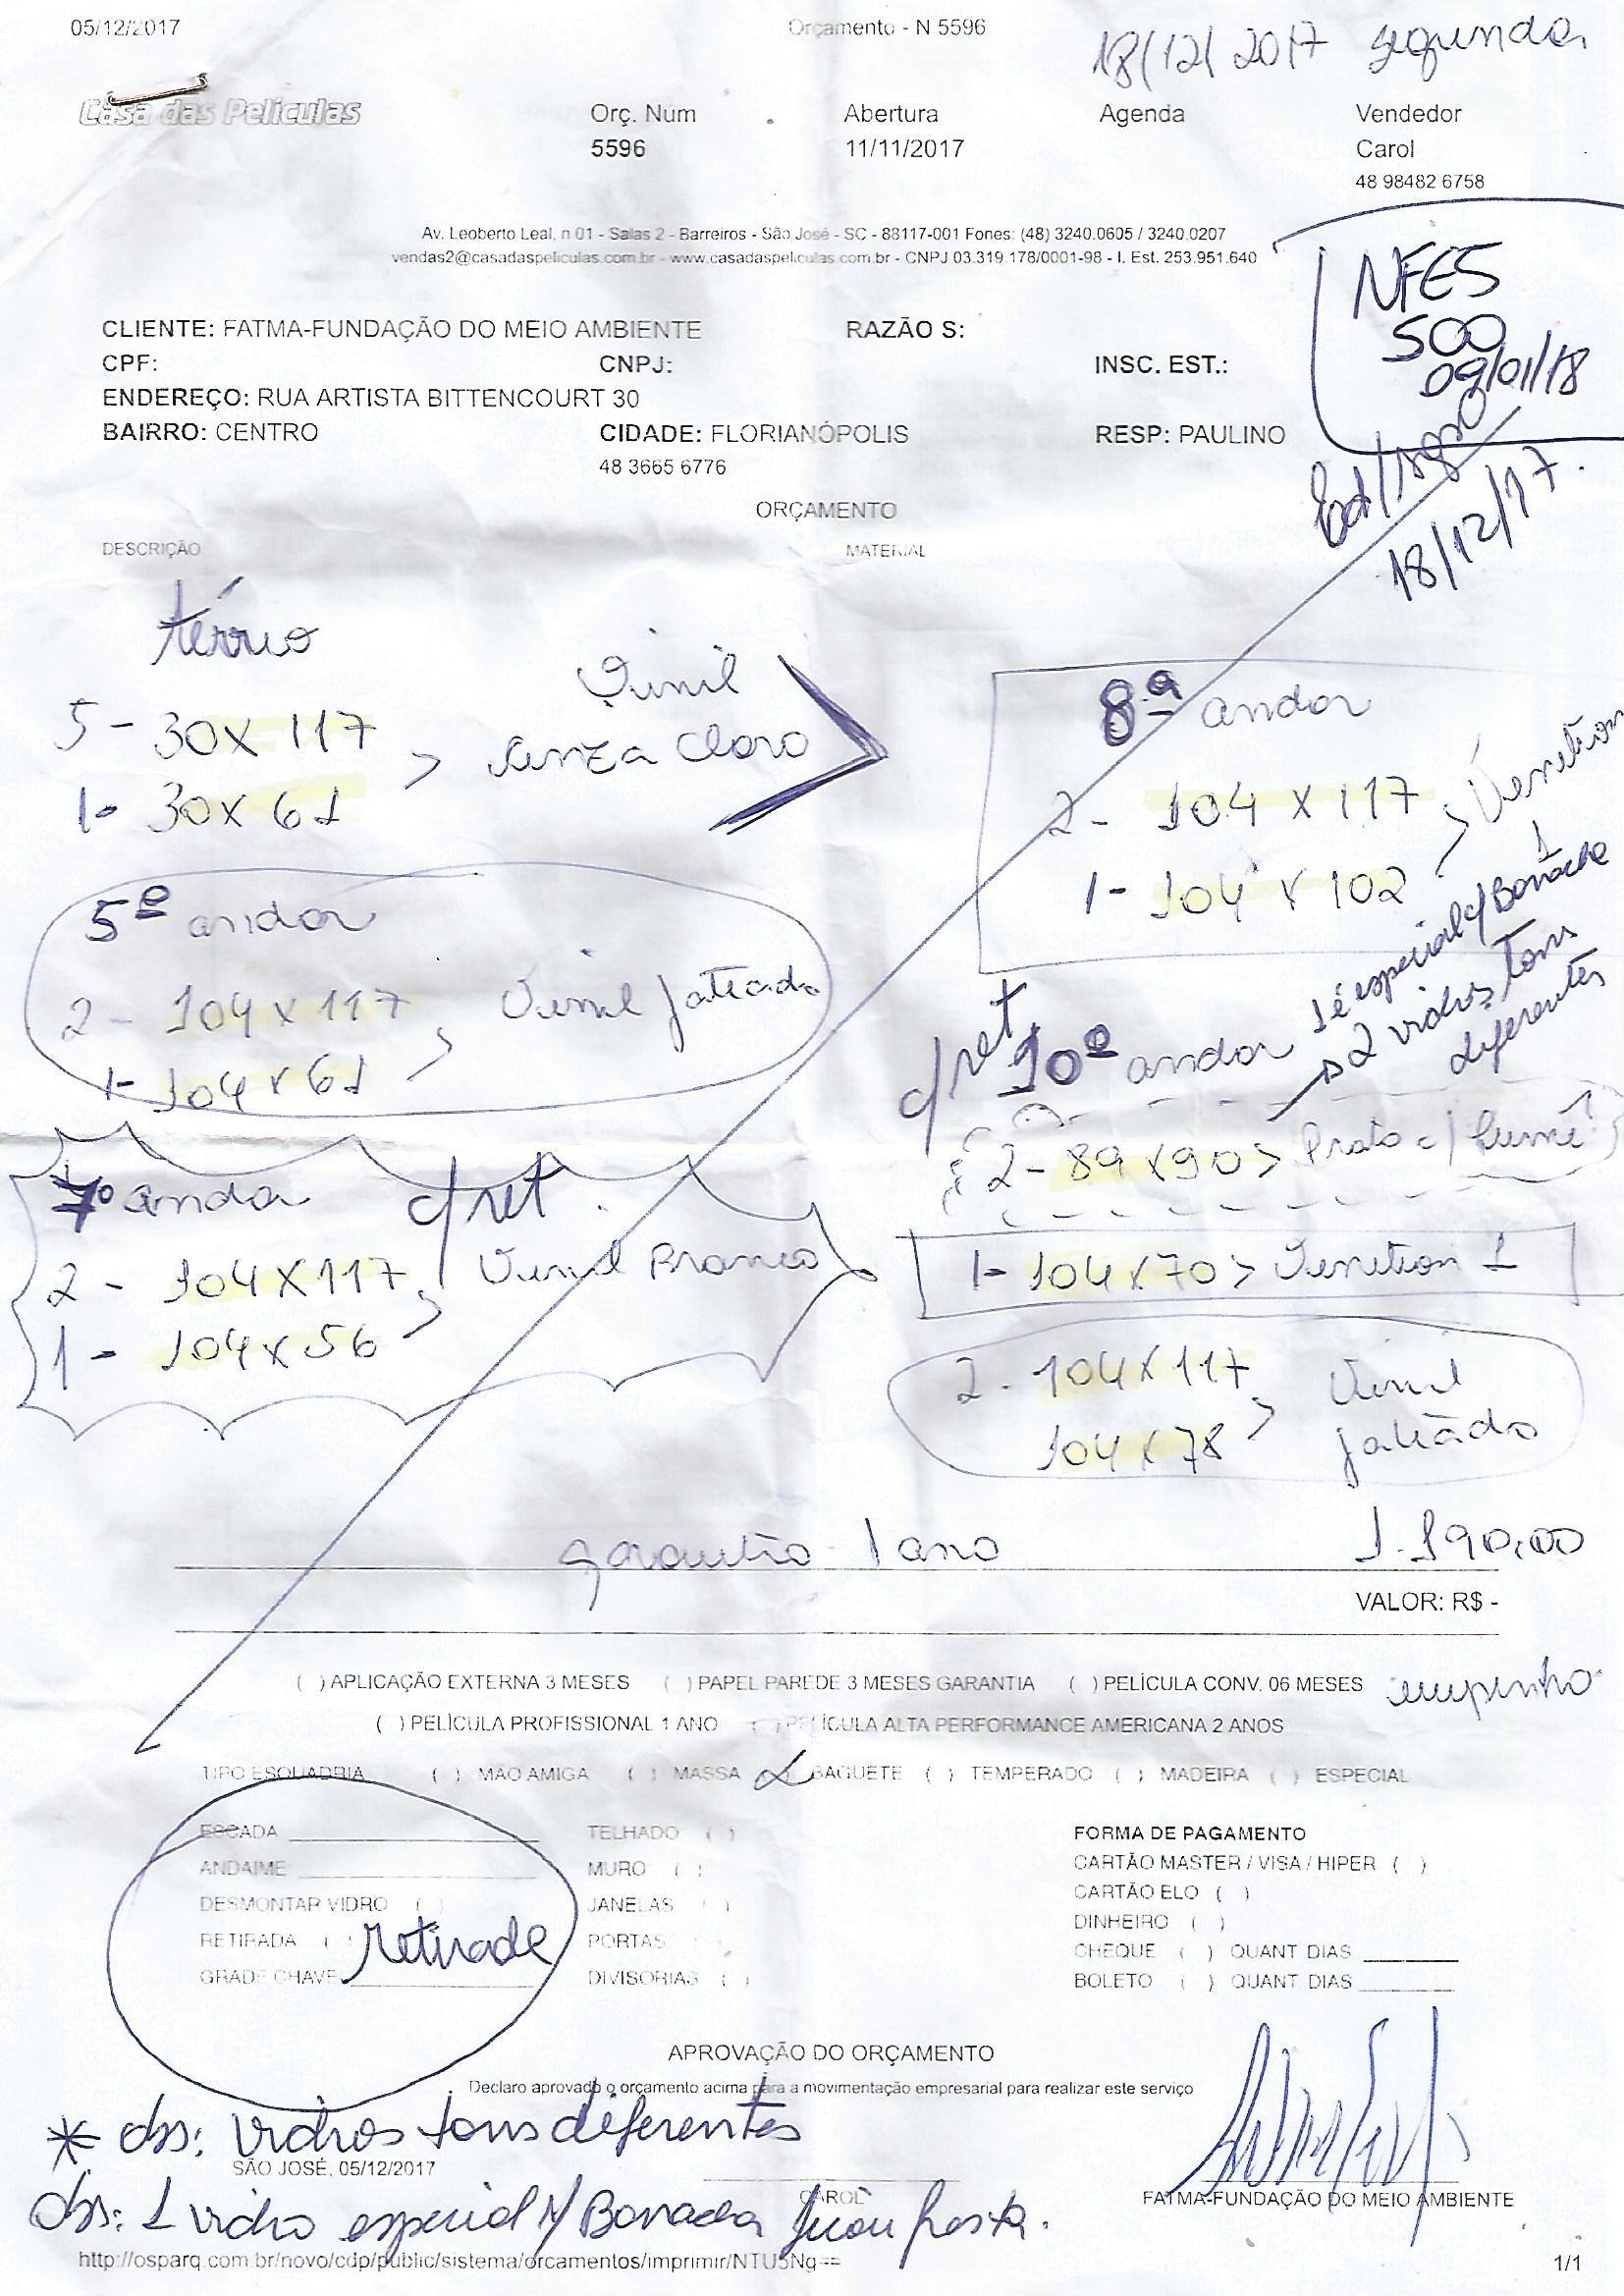 05/12/2017
Orçamento - N 5596
18/12/2017 segunda
Casa das Películas
Orç. Num
Abertura
Agenda
Vendedor
5596
11/11/2017
Carol
48 98482 6758
Av. Leoberto Leal, n 01 - Salas 2 - Barreiros - São José - SC - 88117-001 Fones: (48) 3240.0605 / 3240.0207
vendas2@casadaspeliculas.com.br - www.casadaspeliculas.com.br - CNPJ 03.319.178/0001-98 - I. Est. 253.951.640
NFES
500
09/01/18
CLIENTE: FATMA-FUNDAÇÃO DO MEIO AMBIENTE
RAZÃO S:
CPF:
CNPJ:
INSC. EST.:
ENDEREÇO: RUA ARTISTA BITTENCOURT 30
BAIRRO: CENTRO
CIDADE: FLORIANÓPOLIS
RESP: PAULINO
48 3665 6776
18/12/17.
ORÇAMENTO
DESCRIÇÃO
MATERIAL
térrio
5 - 30 X 117
1- 30 X 61
> Vinil
cinza claro
5º andar
2 - 104 x 117
1- 104 x 61
> Vinil jateado
7º andar c/ ret.
2 - 104 X 117
1 - 104 X 56
> Vinil Branco
8ª andar
2- 104 X 117
1- 104 X 102
> Venetion 1
c/ ret 10º andar
1 é especial c/ Bonache
2 vidros tons
diferentes
2 - 89 X 90 > Prata c/ fumê
1- 104 X 70 > Venetion 1
2 - 104 X 117
104 X 78
> Vinil
jateado
garantia 1 ano
1.190,00
VALOR: R$ -
( ) APLICAÇÃO EXTERNA 3 MESES ( ) PAPEL PAREDE 3 MESES GARANTIA ( ) PELÍCULA CONV. 06 MESES
empenho
( ) PELÍCULA PROFISSIONAL 1 ANO ( ) PELÍCULA ALTA PERFORMANCE AMERICANA 2 ANOS
TIPO ESQUADRIA ( ) MÃO AMIGA ( ) MASSA (X) BAGUETE ( ) TEMPERADO ( ) MADEIRA ( ) ESPECIAL
ESCADA
TELHADO ( )
FORMA DE PAGAMENTO
ANDAIME
MURO ( )
CARTÃO MASTER / VISA / HIPER ( )
DESMONTAR VIDRO ( )
JANELAS ( )
CARTÃO ELO ( )
RETIRADA ( ) Retirade
PORTAS ( )
DINHEIRO ( )
GRADE CHAVE
DIVISORIAS ( )
CHEQUE ( ) QUANT DIAS
BOLETO ( ) QUANT DIAS
APROVAÇÃO DO ORÇAMENTO
Declaro aprovado o orçamento acima para a movimentação empresarial para realizar este serviço
* obs: vidros tons diferentes
SÃO JOSÉ, 05/12/2017
CAROL
FATMA-FUNDAÇÃO DO MEIO AMBIENTE
obs: 1 vidro especial
http://osparq.com.br/novo/cdp/public/sistema/orcamentos/imprimir/NTU5Ng==
1/1